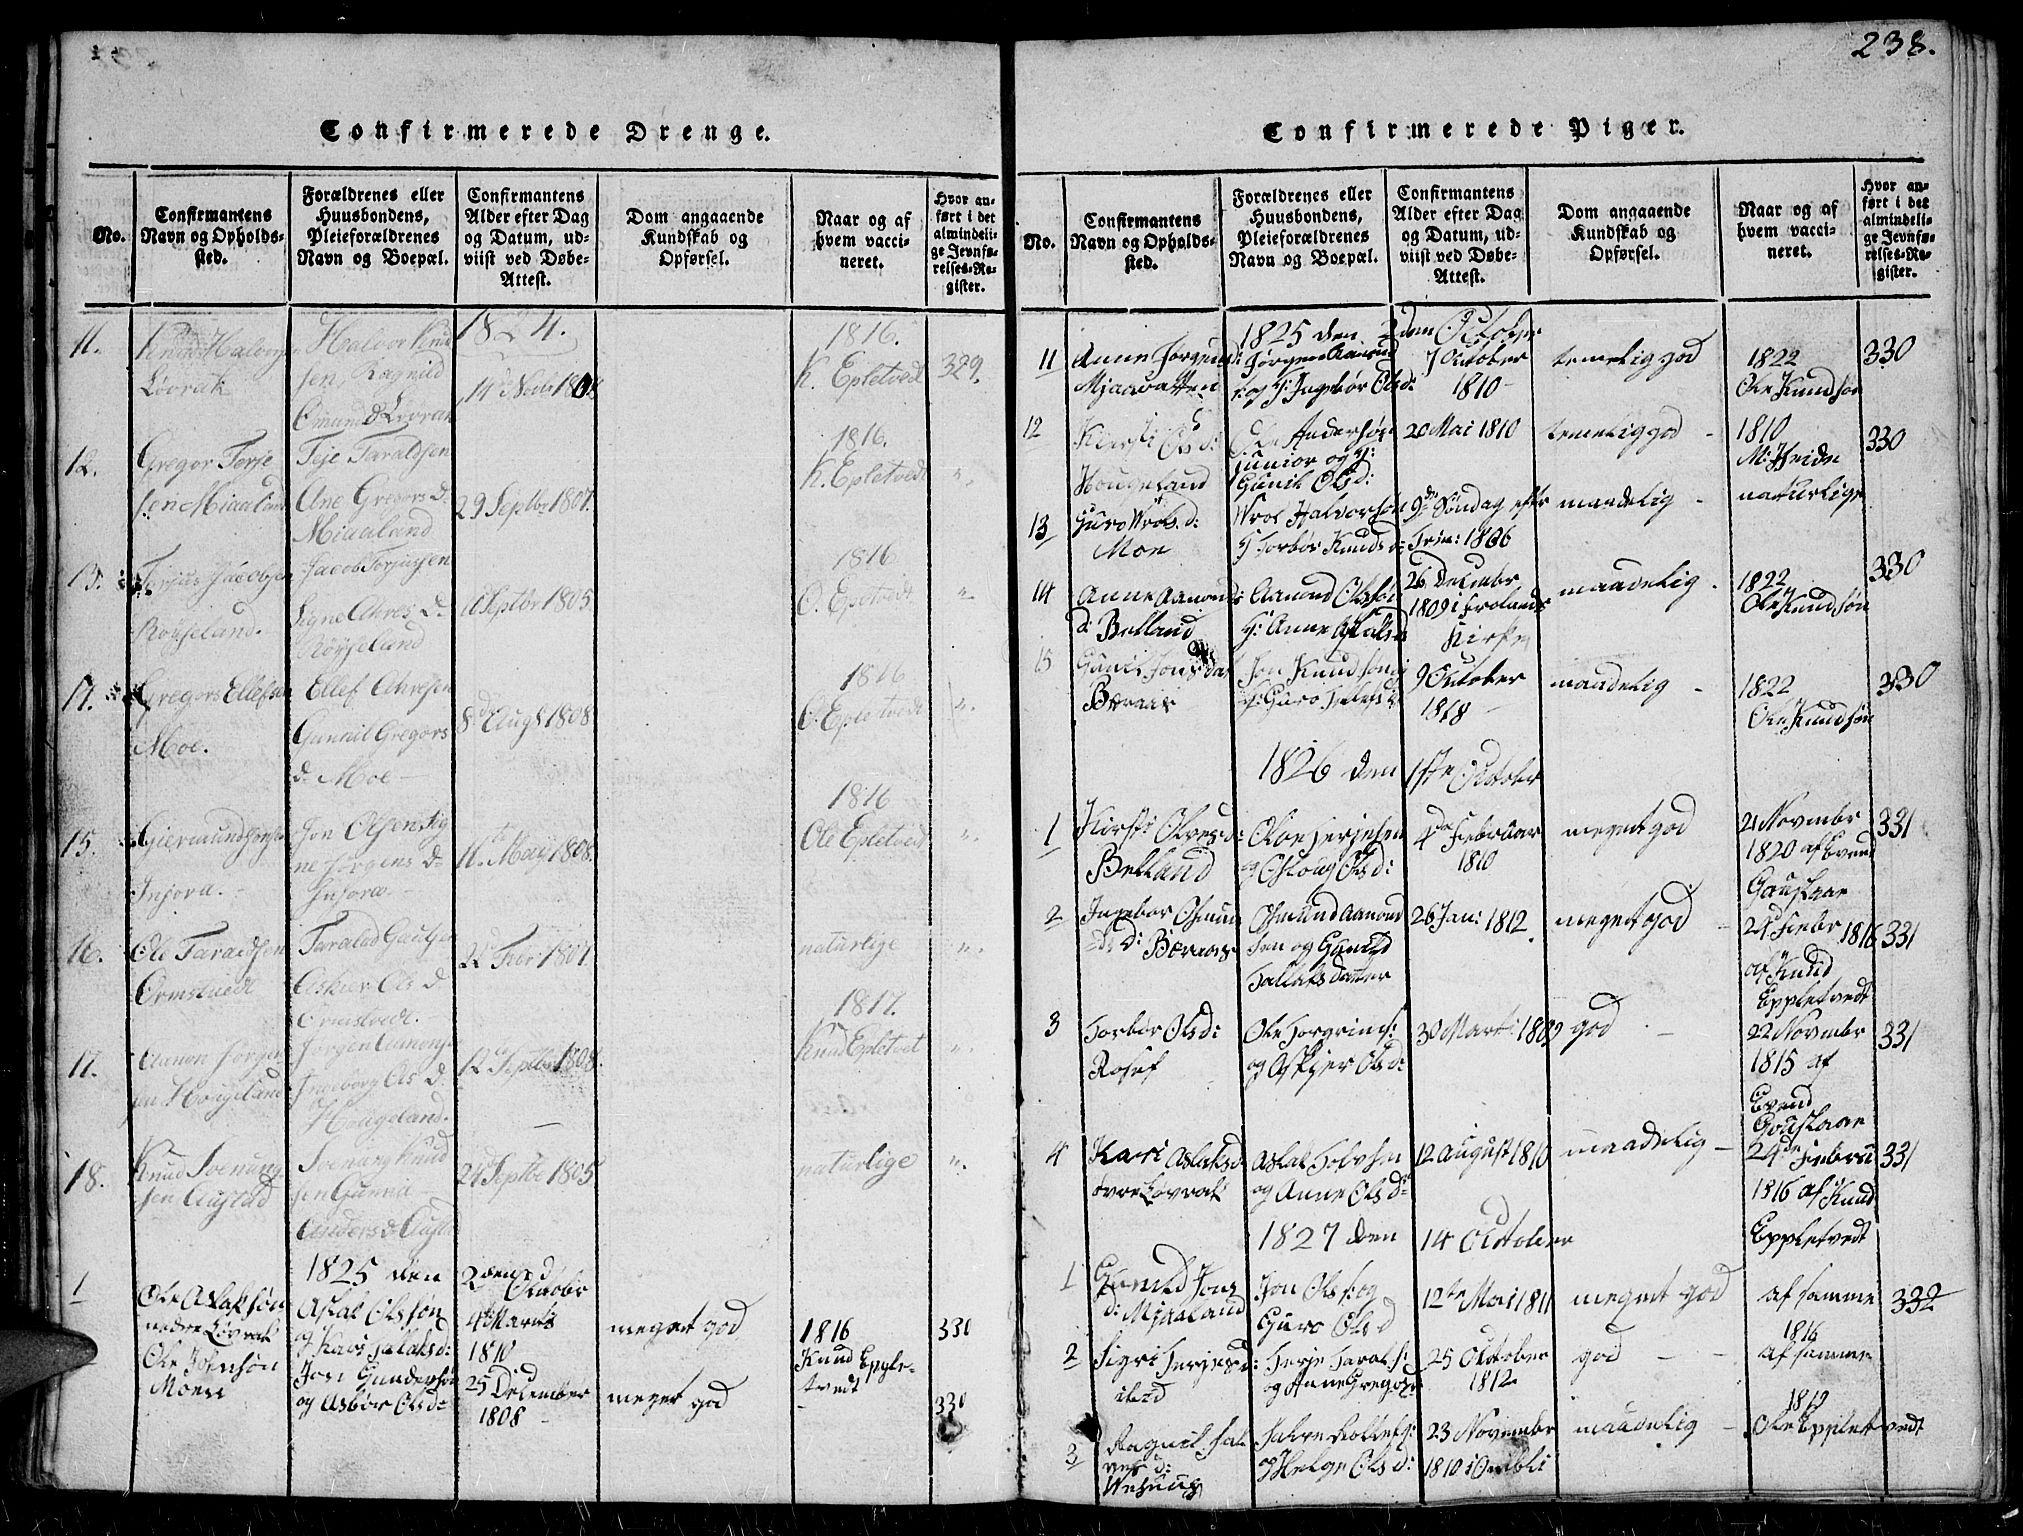 238.
Confirmerede Drenge.
No.
Confirmantens
Navn og Opholds-
sted.
Forældrenes eller
Huusbondens,
Pleieforældrenes
Navn og Boepæl.
Confirmantens
Alder efter Dag
og Datum, ud-
viist ved Døbe-
Attest.
Dom angaaende
Kundskab og
Opførsel.
Naar og af
hvem vacci-
neret.
Hvor an-
ført i det
almindeli-
ge Jevnfø-
relses-Re-
gister.
1824.
11.
Knud Halvorsen
Løvrak
Halvor Knud
sen, Ragnild
Omund d. Løvrak
14 Novbr 1808
1816.
K. Epletved
329.
12.
Gregor Terje
sen Miaaland
Teje Taraldsen
Ane Gregors d.
Miaaland
29 Septbr 1807.
1816.
K. Epletvedt
13.
Torjus Jacobsen
Røyseland.
Jacob Torjussen
Signe Aanes d.
Røyseland
Septbr 1805
1816
O. Epletvedt
Gregors Ellefsen
Moe.
Ellef
Gunnil Gregors
d. Moe
8de Augst 1808
1816
O. Epletvedt
15.
Injora.
Jon Olsen Sig
ne Jørgens d.
Injora
11te Maij 1808.
1816
Ole Epletvedt
16.
Ole Taraldsen
Ormstvedt
Ols d.
Ormstvedt.
22 Febr 1807.
naturlige
17.
Aanon Jørgen
sen Hougeland
Jørgen Aanons
Ingeborg Ols d.
Hougeland.
12 Septbr 1808.
1817.
Knud Epletvet
18.
Knud Tvenung
sen Augstad
Tvenung Knud
sen Gunnild
Anders d.
24 Septbr 1805
naturlige
1825 den 2den October
1
Ole Aslaksøn
nedre Løvrak
Aslak Olssøn
og Kari Tallaksd:
4de Marts
1810
meget god
1816
Knud Epple-
tvedt
330
Ole Johnsøn
Moen
Jon Gundersøn
og Asbør Olsd:
25 December
1808
meget god
330
Confirmerede Piger.
No.
Confirmantens
Navn og Opholds-
sted.
Forældrenes eller
Huusbondens,
Pleieforældrenes
Navn og Boepæl.
Confirmantens
Alder efter Dag
og Datum, ud-
viist ved Døbe-
Attest.
Dom angaaende
Kundskab og
Opførsel.
Naar og af
hvem vacci-
neret.
Hvor an-
ført i det
almindeli-
ge Jevnfø-
relses-Re-
gister.
1825 den 2den October
11
Anne Jørgensd:
Mjaavatten
Jørgen Aanonds
og H: Ingebør Olsd:
7 October
1810
temelig god
1822
Ole Knudsøn
330
12
Kirsti Olsd:
Hougeland
Ole Andersøn
junior og H:
Gunil Olsd:
20 Mai 1810
temelig god
1810
M: Heide
330
13
Guro Wrolsd:
Moe
Wrol Halvorsøn
H Torbør Knudsd:
9de Søndag efter
Trin: 1806
maadelig
naturlige
14
Anne Aanonds
d: Belland
Aanond Olssøn
H: Anne Aslaksd
26 Decembr
1809 i Frolands
Kirke
maadelig
1822
Ole Knudsøn
330
15
Gunil Jonsdat
Beraas
Jon Knudsøn
H: Guro
9 October
1818
maadelig
1822
Ole Knudsøn
330
1826 den 1ste October
1
Kirsti Olvesd:
Belland
Olve Terjesen
og Asloug Olsd:
4de Februar
1810
meget god
21 Novembr
1820 af Evend
Gouslaae
331
2
Ingebor Osmun
dsd: Beraas
Osmund Aanond
sen og Gunild
Tallaksdatter
26 Jan: 1812
meget god
24 Febr 1816
af Knud
Eppletvedt
331
3
Torbør Olsd:
Rosef
Ole Torgrims:
og Askjer Olsd:
30 Marts 1809
god
22 Novembr
1815 af
Evend
Gouslaae
331
4
Kari Aslaksd
øvre Løvrak
Aslak Tolvsen
og Anne Olsd:
12 August 1810
maadelig
24de Febru
1816 af Knud
Eppletvedt
331
1827 den 14 October
1
Gunild Jons
d: Mjaaland
Jon Ols: og
Guro Olsd
12te Mai 1811
meget god
af samme
1816
332
2
Sigri Terjesd:
ibid
Terje Taralds:
og Anne Gregorsd
25 October
1812
god
af samme
1819
3
Raguil Sal
vesd:
Salve Rollefs:
og Helge Olsd:
23 November
1810 i Omli
maadelig
Ole Eppletvedt